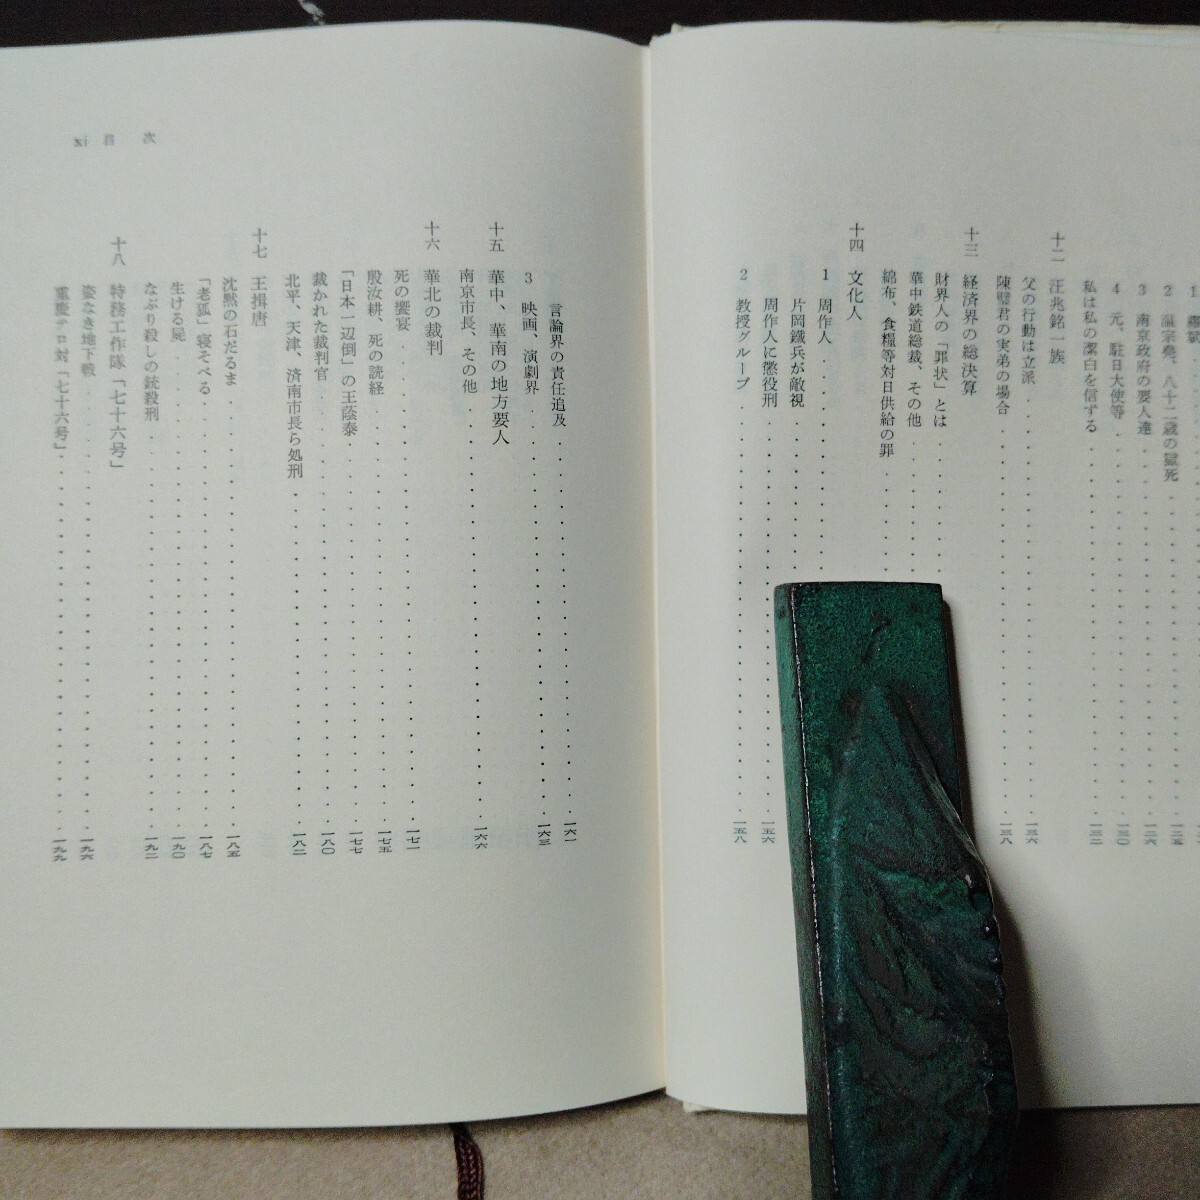 4 元、駐日大使等 一三〇
私は私の潔白を信ずる 一三二
十二 汪兆銘一族
父の行動は立派 一三六
陳璧君の実弟の場合 一三八
十三 経済界の総決算
財界人の「罪状」とは
華中鉄道総裁、その他
綿布、食糧等対日供給の罪
十四 文化人
1 周作人
片岡鐵兵が敵視
周作人に懲役刑 一五六
2 教授グループ 一五八
言論界の責任追及 一六一
3 映画、演劇界 一六三
十五 華中、華南の地方要人
南京市長、その他 一六六
十六 華北の裁判
死の饗宴 一七一
殷汝耕、死の読経 一七五
「日本一辺倒」の王蔭泰 一七七
裁かれた裁判官 一八〇
北平、天津、済南市長ら処刑 一八二
十七 王揖唐
沈黙の石だるま 一八五
「老狐」寝そべる 一八七
生ける屍 一九〇
なぶり殺しの銃殺刑 一九二
十八 特務工作隊「七十六号」
姿なき地下戦 一九六
重慶テロ対「七十六号」 一九九